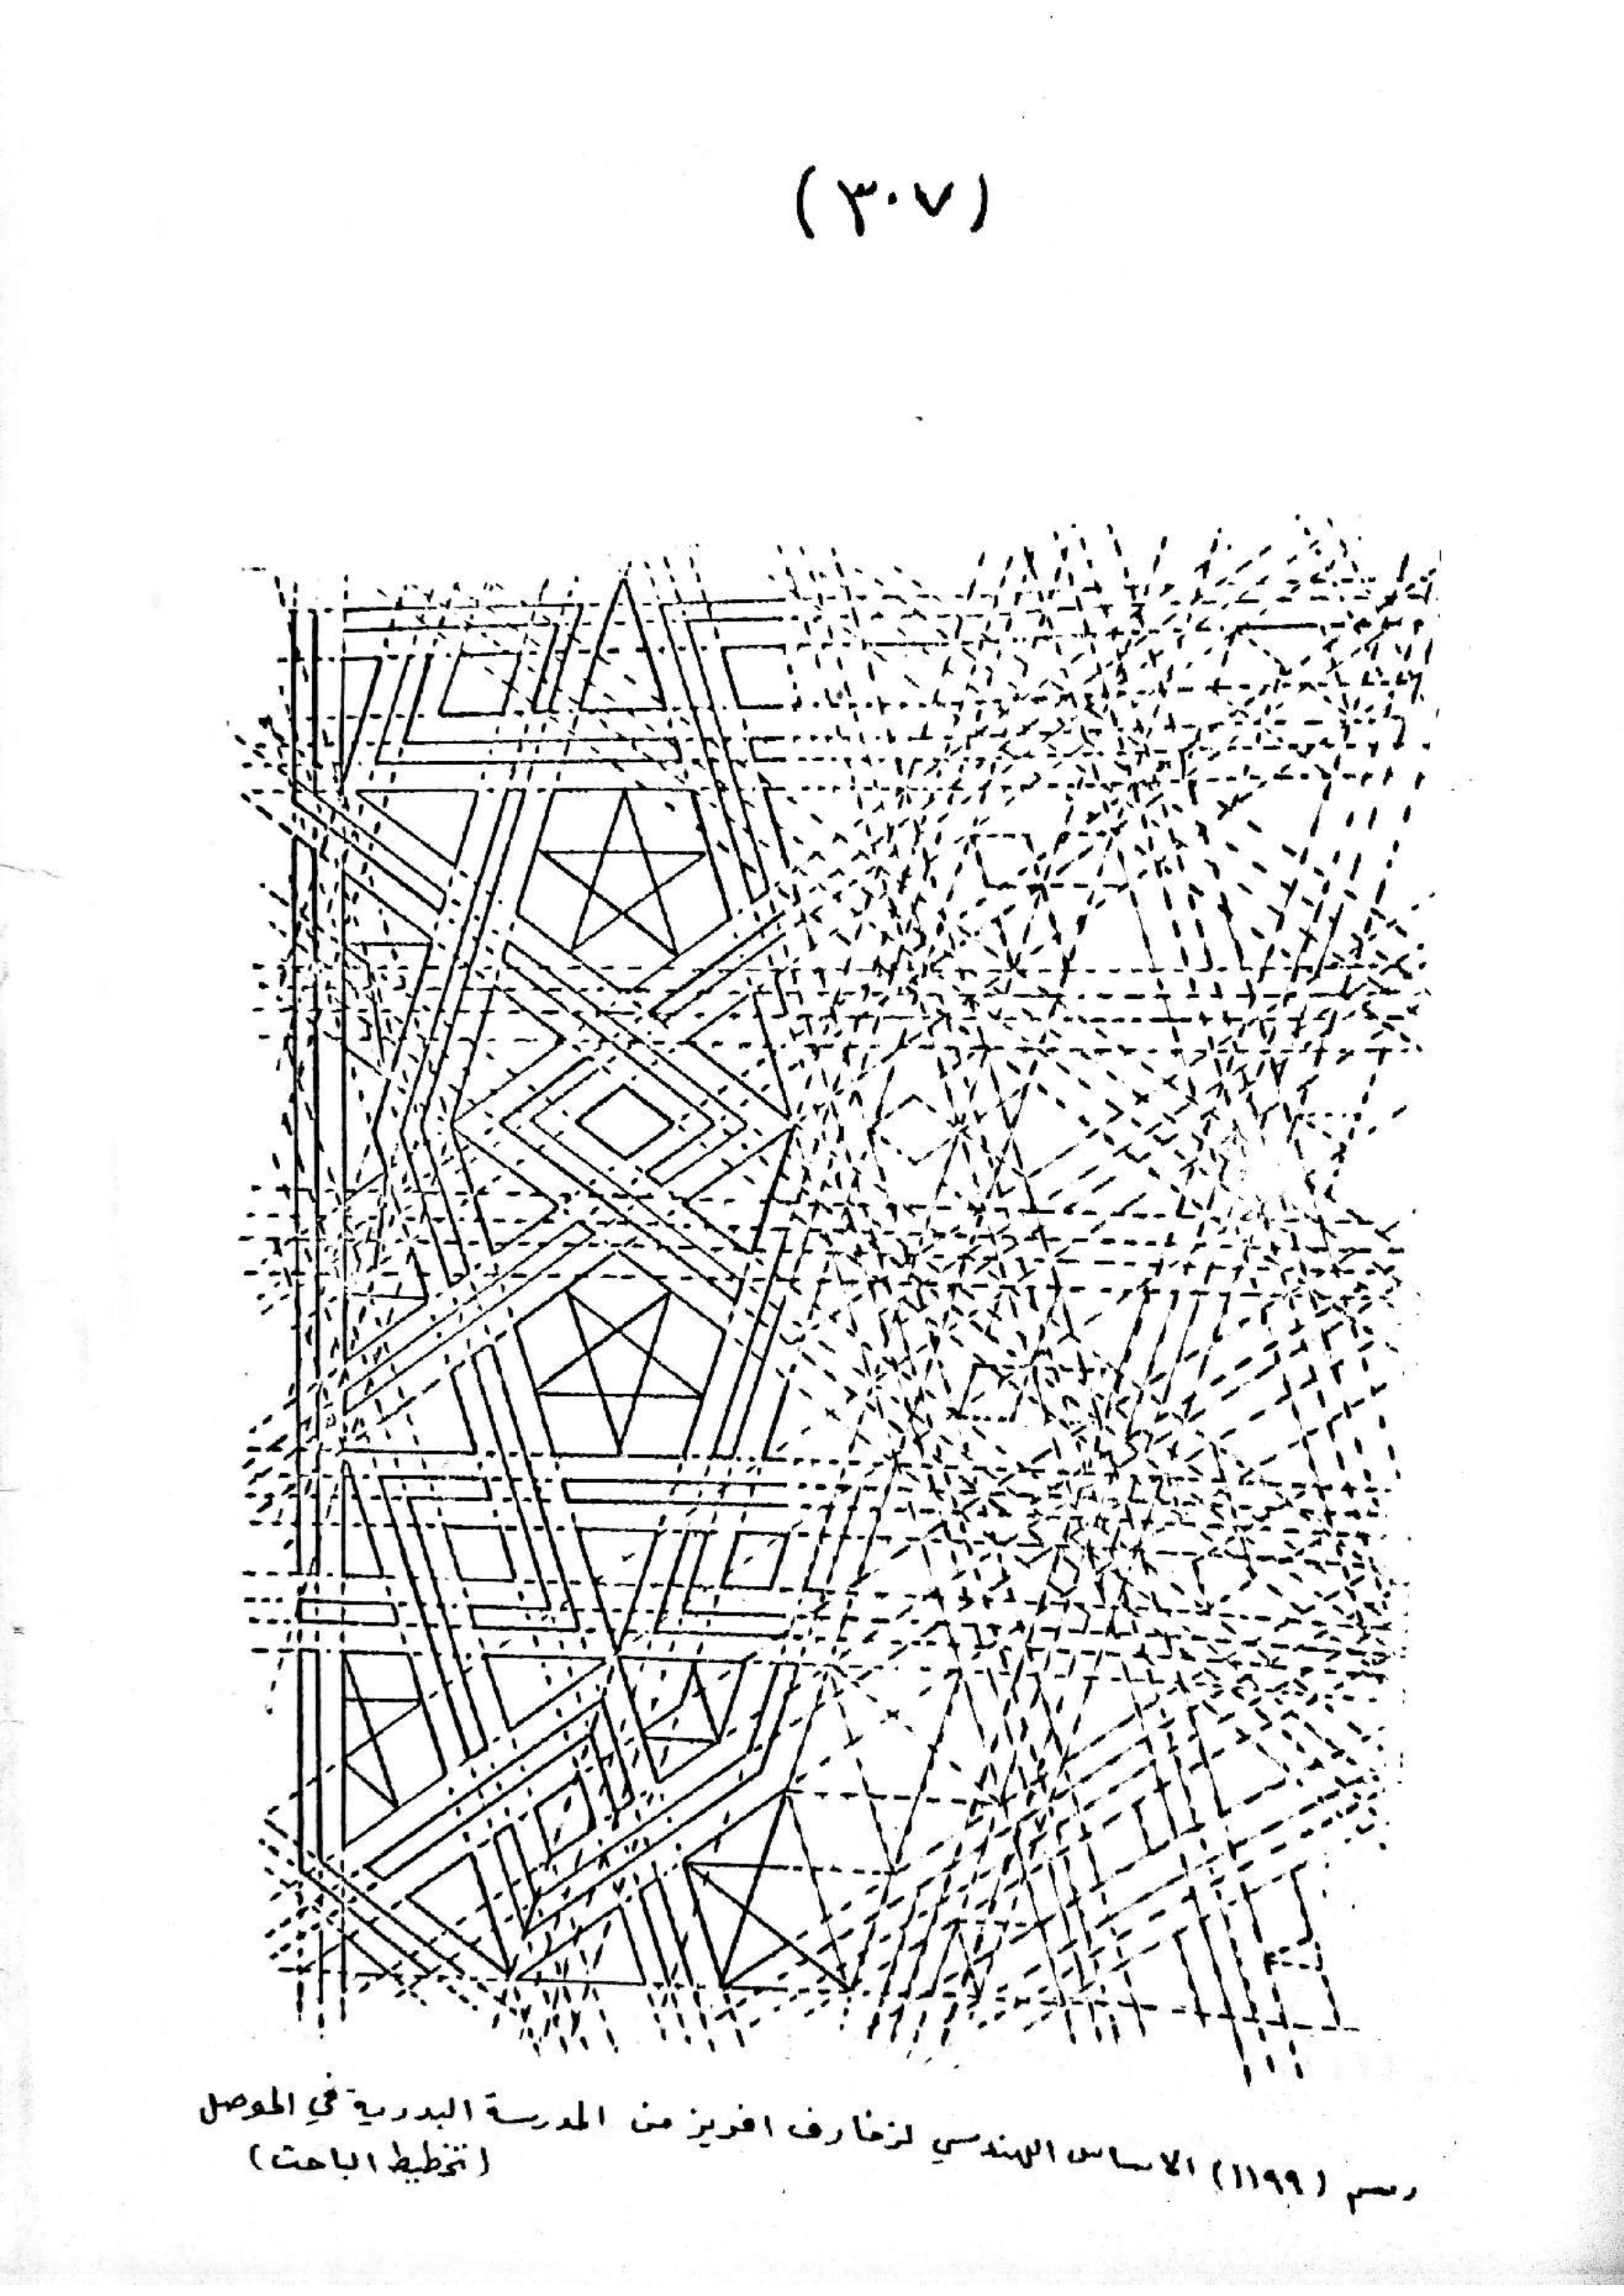 (٣٠٧)
رسم (١١٩٩) الاساس الهندسي لزخارف افريز من المدرسة البدرية في الموصل
(تخطيط الباحث)